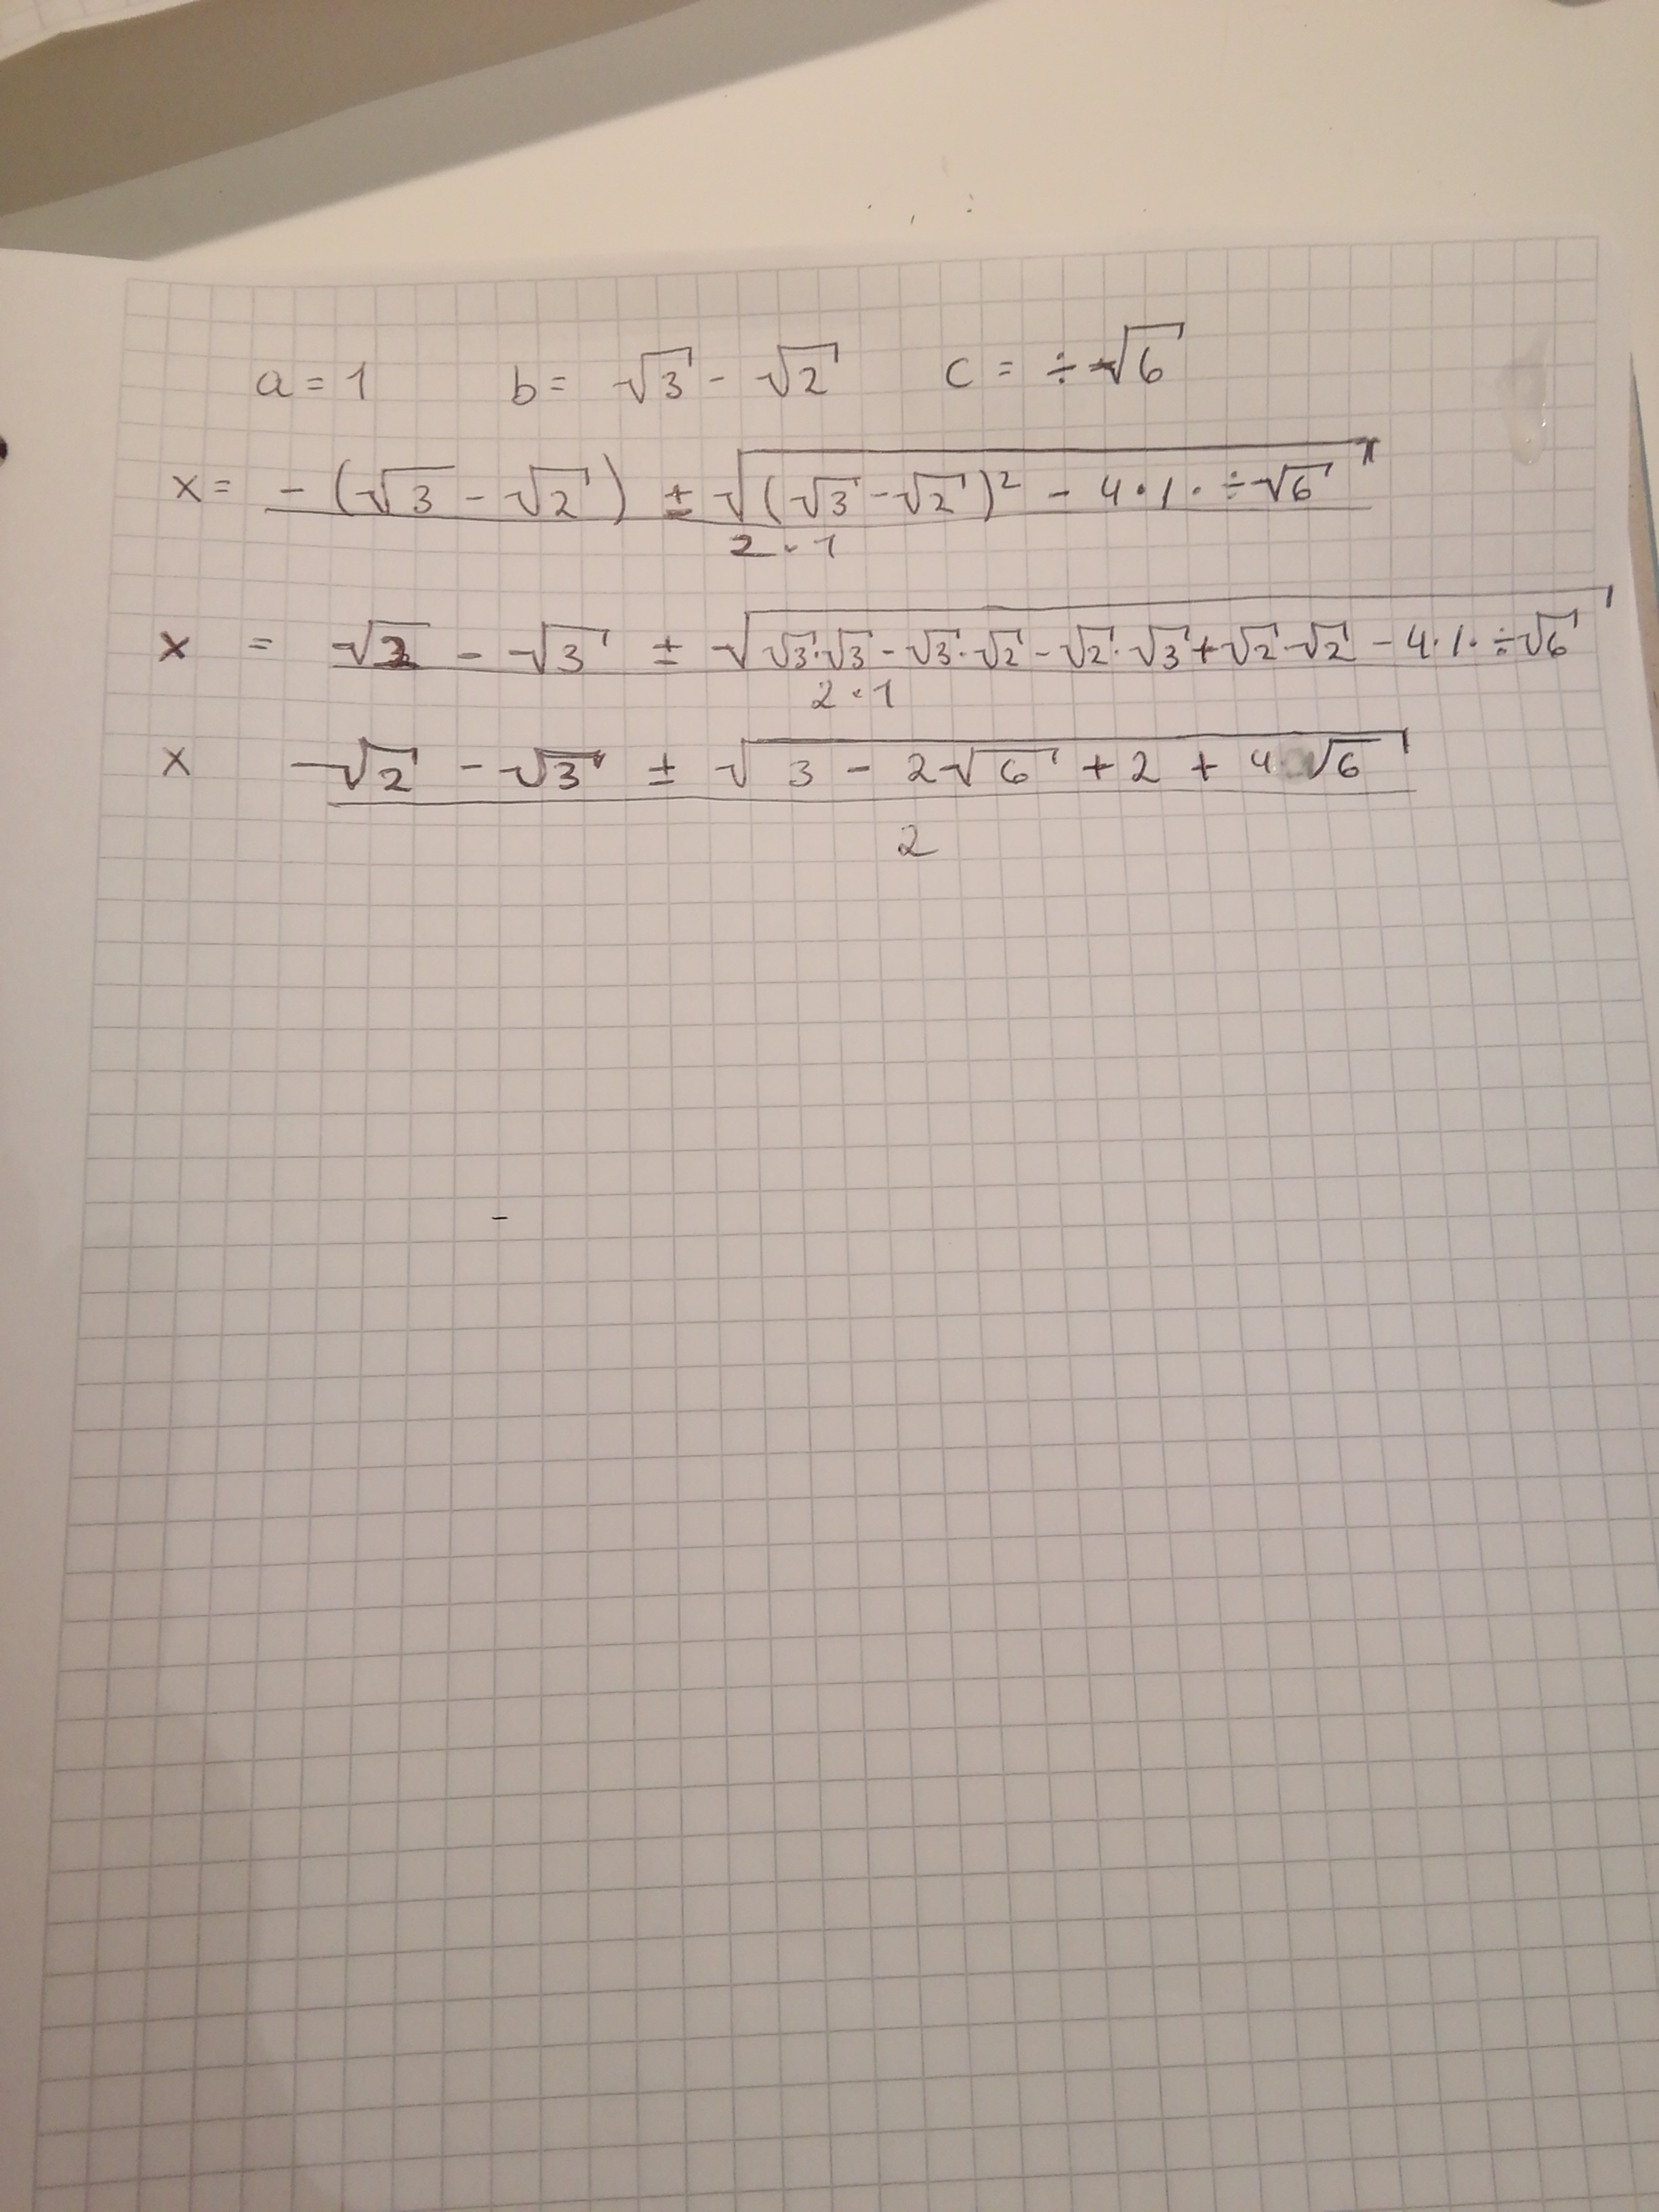 a = 1 b = √3 - √2 c = ÷√6
x = -(√3 - √2) ± √((√3 - √2)² - 4·1·÷√6)
2·1
x = √2 - √3 ± √(√3·√3 - √3·√2 - √2·√3 + √2·√2 - 4·1·÷√6)
2·1
x √2 - √3 ± √(3 - 2√6 + 2 + 4√6)
2